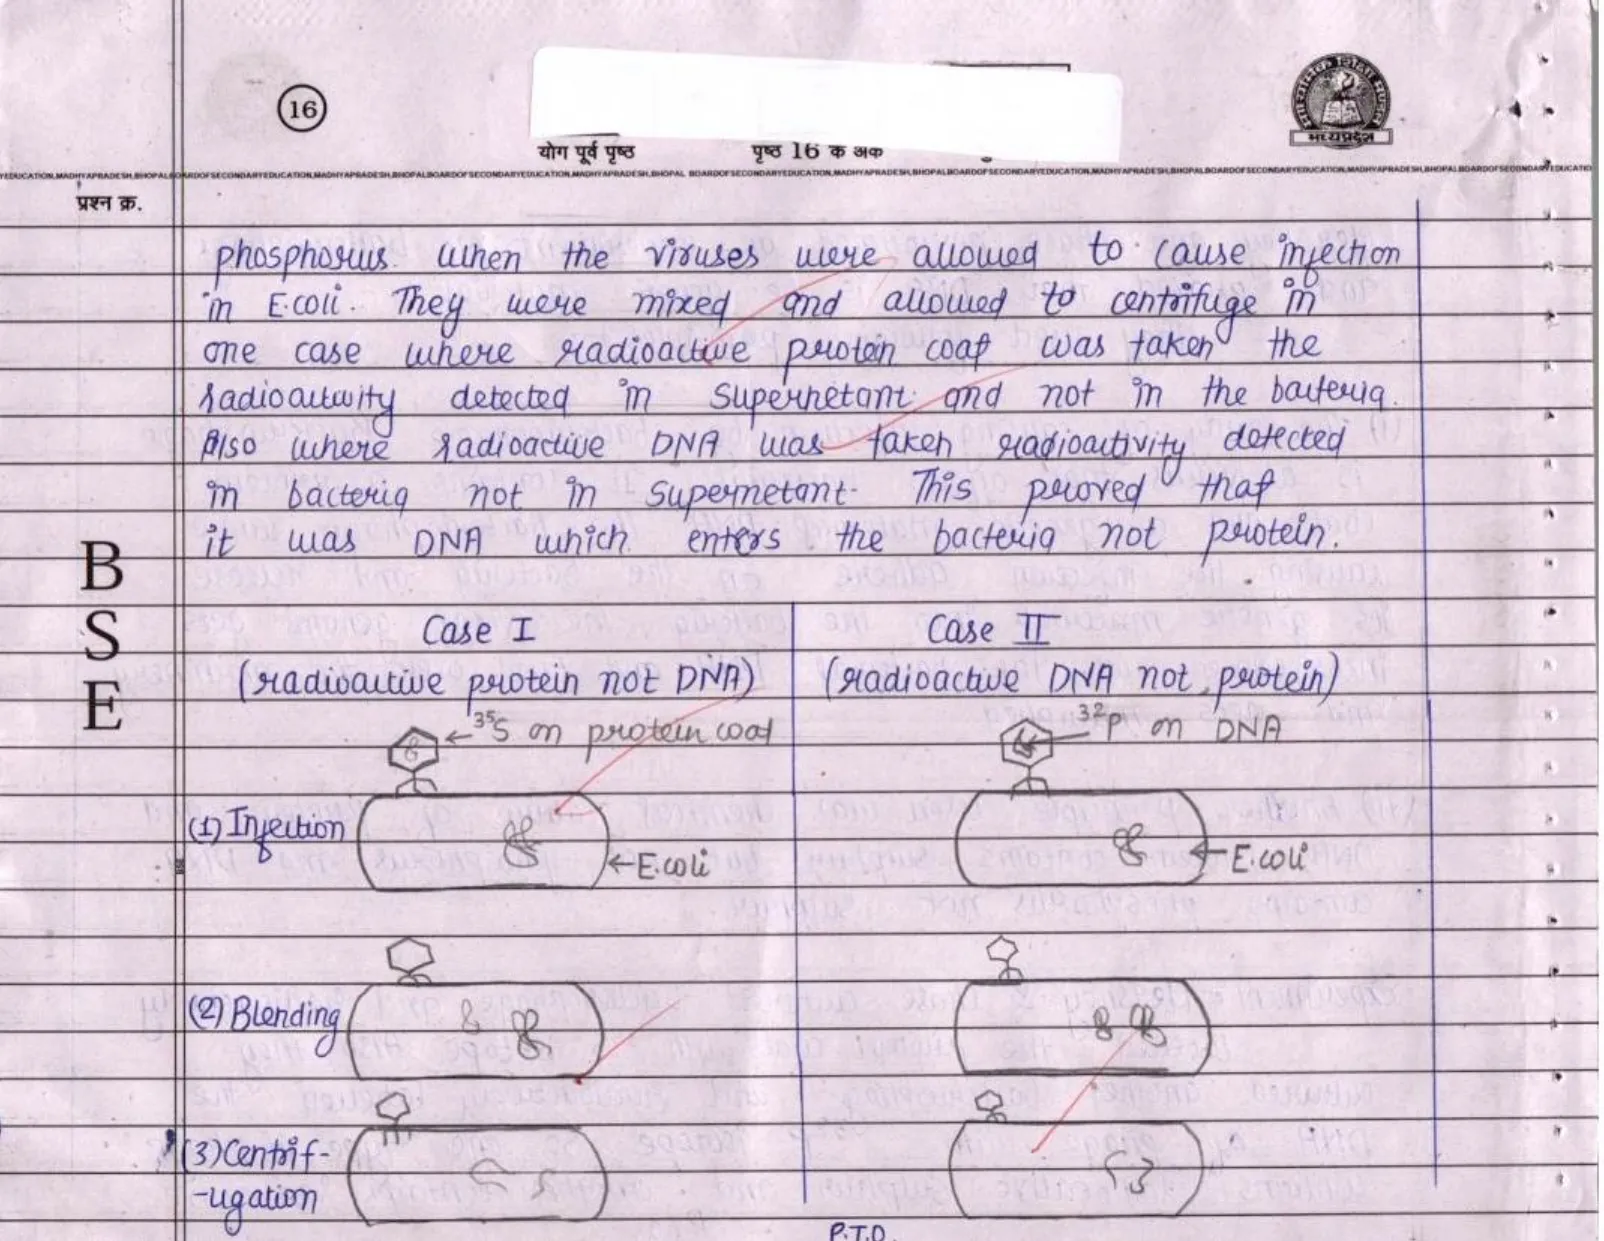 16
मध्यप्रदेश
योग पूर्व पृष्ठ
पृष्ठ 16 क अक
YEDUCATION,MADHYAPRADESH,BHOPALBOARDOFSECONDARYEDUCATION,MADHYAPRADESH,BHOPALBOARDOFSECONDARYEDUCATION,MADHYAPRADESH,BHOPAL BOARDOFSECONDARYEDUCATION,MADHYAPRADESH,BHOPALBOARDOFSECONDARYEDUCATION,MADHYAPRADESH,BHOPALBOARDOFSECONDARYEDUCATION
प्रश्न क्र.
phosphorus. When the viruses were allowed to cause infection
in E.coli. They were mixed and allowed to centrifuge in
one case where radioactive protein coat was taken the
radioactivity detected in Supernetant and not in the bacteria.
Also where radioactive DNA was taken radioactivity detected
in bacteria not in Supernetant. This proved that
it was DNA which enters the bacteria not protein.
B
S
E
Case I
Case II
(radioactive protein not DNA)
(radioactive DNA not protein)
35S on protein coat
32P on DNA
(1) Infection
←E.coli
←E.coli
(2) Blending
(3) Centrif-
-ugation
P.T.O.